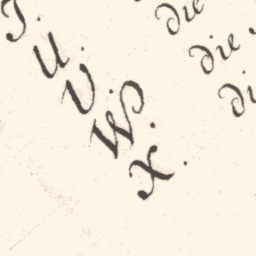 T.
U. die
V. die,
W. di
X.